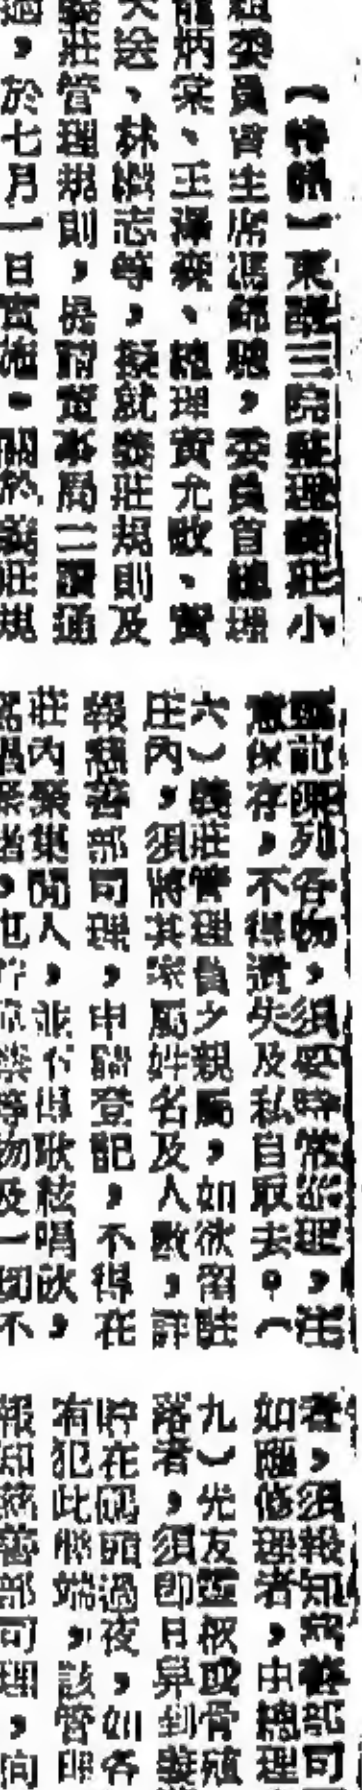 （特訊）東華三院整理義莊小
組委員會主席馮師聰，委員首總理
龍炳棠、王澤森、總理黃允畋、黃
，林樹志等，擬就義莊規則及
義莊管理規則，提前董事局二讀通
過，於七月一日實施。關於義莊規
靈前陳列各物，須要時常料理，注
意保存，不得遺失及私自取去。（
六）義莊管理員之親屬，如欲留駐
庄內，須將其家屬姓名及人數，詳
報慈善部司理，申請登記，不得在
莊內聚集閒人，並不得歌絃唱飲，
等物及一切不
者，須報知慈善部司
如應修理者，由總理
九）先友靈柩或骨殖
落者，須即日舁到義
時在碼頭過夜，如各
有犯此弊端，該管理
報知慈善部司理，向